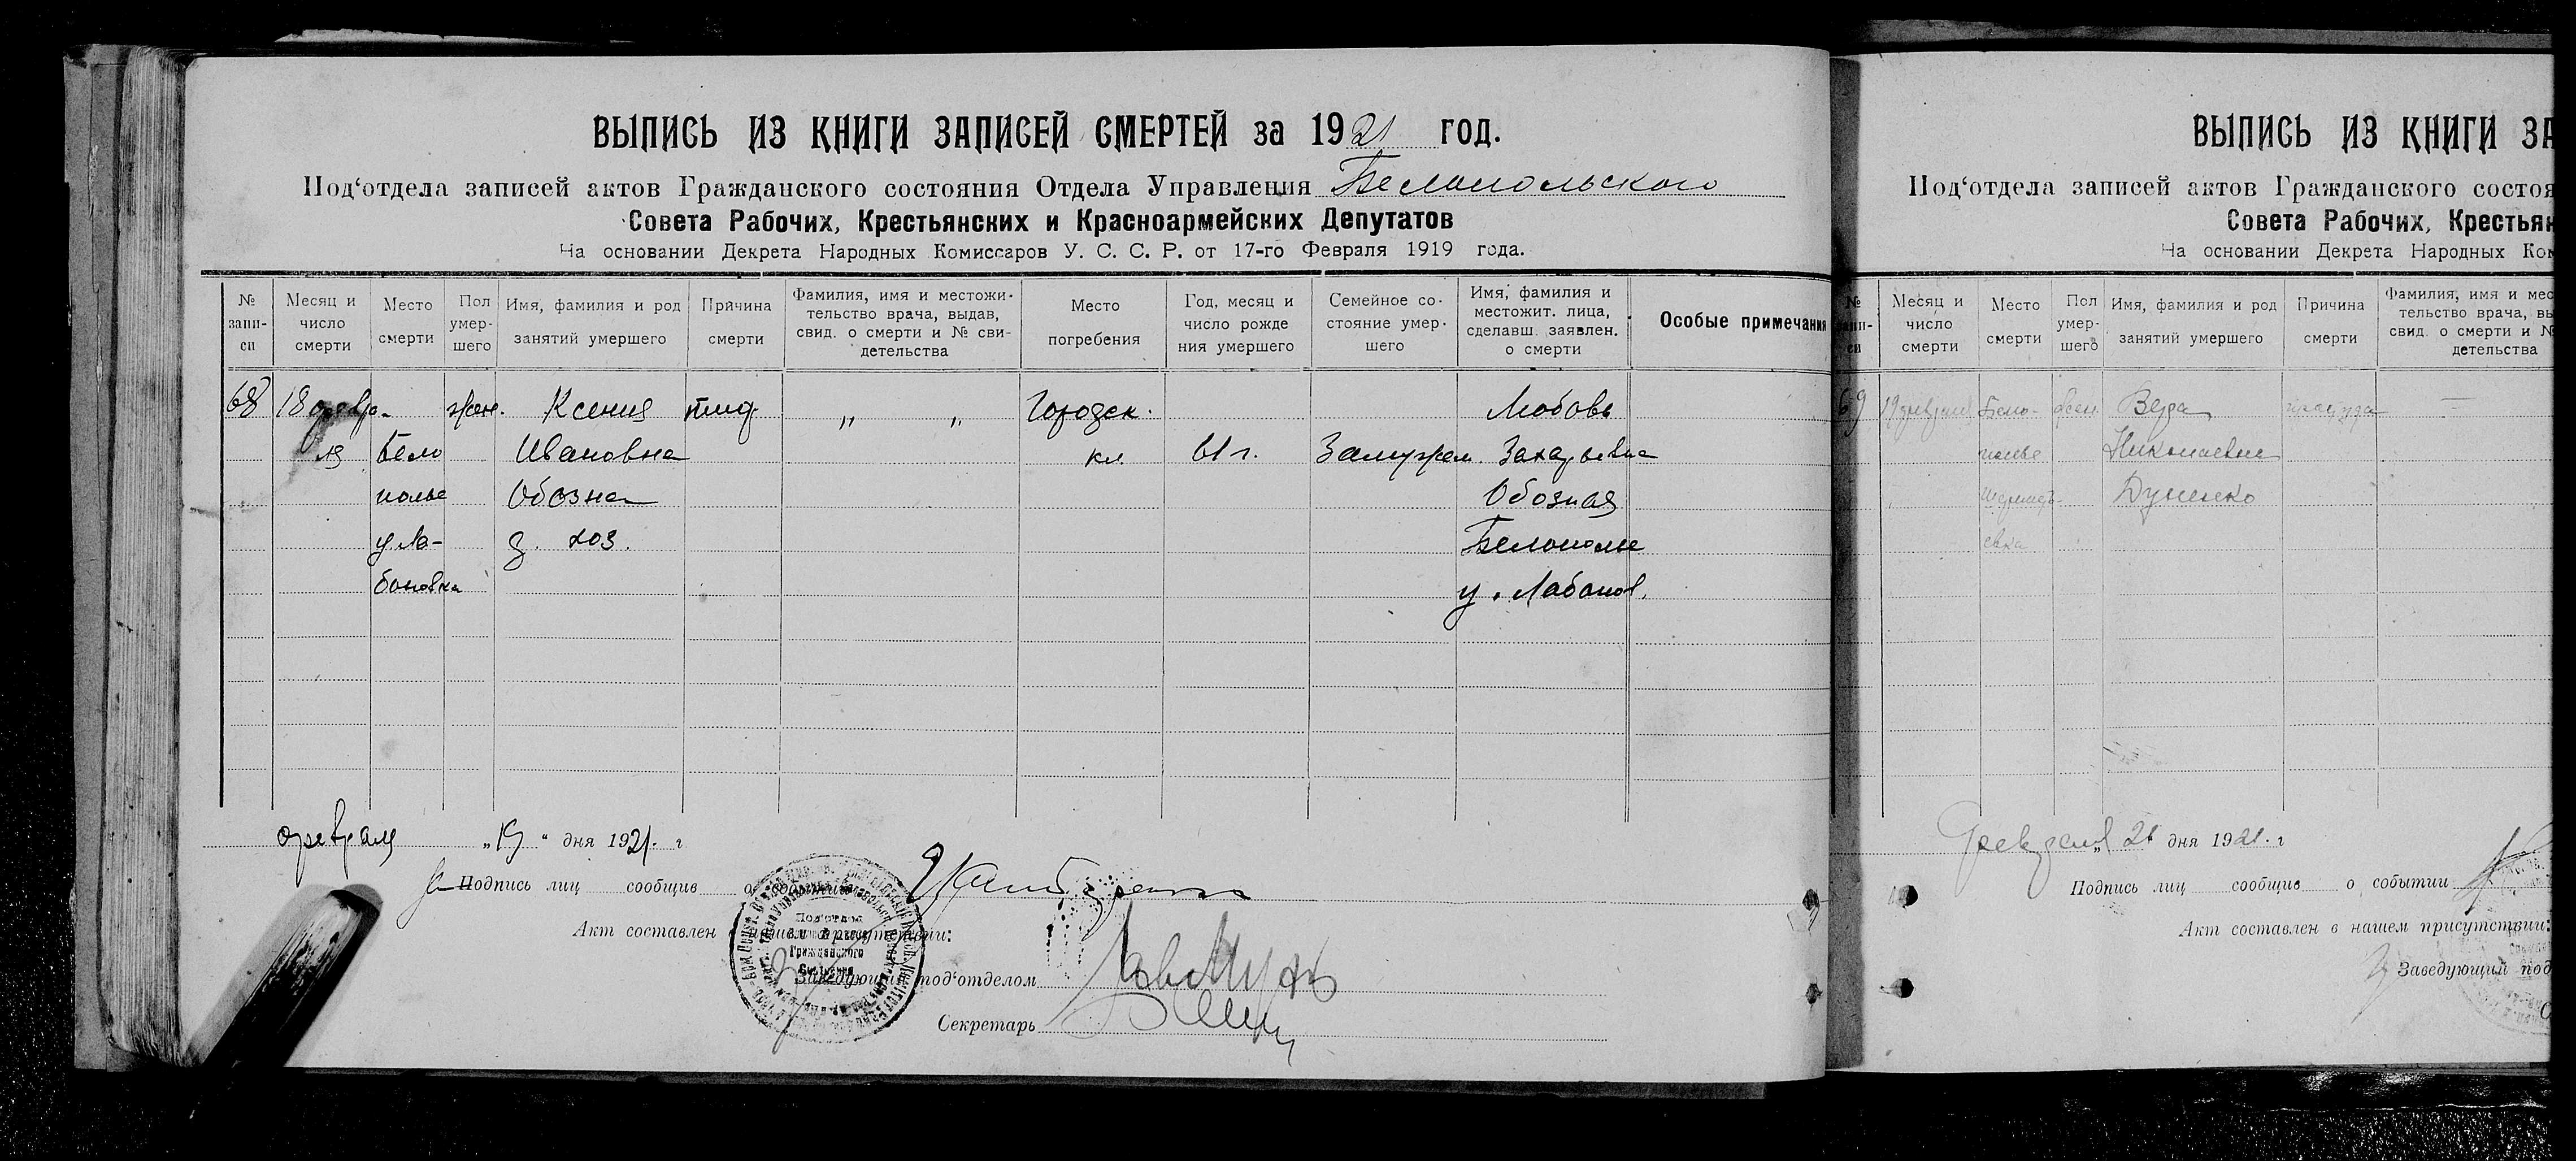 ВЫПИСЬ ИЗ КНИГИ ЗАПИСЕЙ СМЕРТЕЙ за 1921 год.
Под‘отдела записей актов Гражданского состояния Отдела Управления Белопольского
Совета Рабочих, Крестьянских и Красноармейских Депутатов
На основании Декрета Народных Комиссаров У. С. С. Р. от 17-го Февраля 1919 года.
№ запи-си
Месяц и число смерти
Место смерти
Пол умер-шего
Имя, фамилия и род занятий умершего
Причина смерти
Фамилия, имя и местожи-тельство врача, выдав, свид. о смерти и № сви-детельства
Место погребения
Год, месяц и число рожде ния умершего
Семейное со-стояние умер-шего
Имя, фамилия и местожит. лица, сделавш. заявлен. о смерти
Особые примечания
68 18 февра- жен. Ксения тиф „ „ Городск. Любовь
ля Бело Ивановна кл. 61 г. Замужем. Захарьевна
полье Обозна Обозная
у Ло- д. хоз. Белополье
бановка у. Лобанов.
февраля „19“ дня 1921. г
Подпись лиц сообщив о событии
Акт составлен в нашем присутствии:
Заведующий под‘отделом
Секретарь
Под‘отдел
Гражданского
ВЫПИСЬ ИЗ КНИГИ ЗА
Под‘отдела записей актов Гражданского состоя
Совета Рабочих, Крестьян
На основании Декрета Народных Ком
№
Месяц и число смерти
Место смерти
Пол умер-шего
Имя, фамилия и род занятий умершего
Причина смерти
Фамилия, имя и мес тельство врача, вы свид. о смерти и № детельства
69 19 февраля Бело- жен Вера
полье Николаевна
Дуненко
евка
Февраля 21 дня 1921. г
Подпись лиц сообщив о событии
Акт составлен в нашем присутствии:
Заведующий под